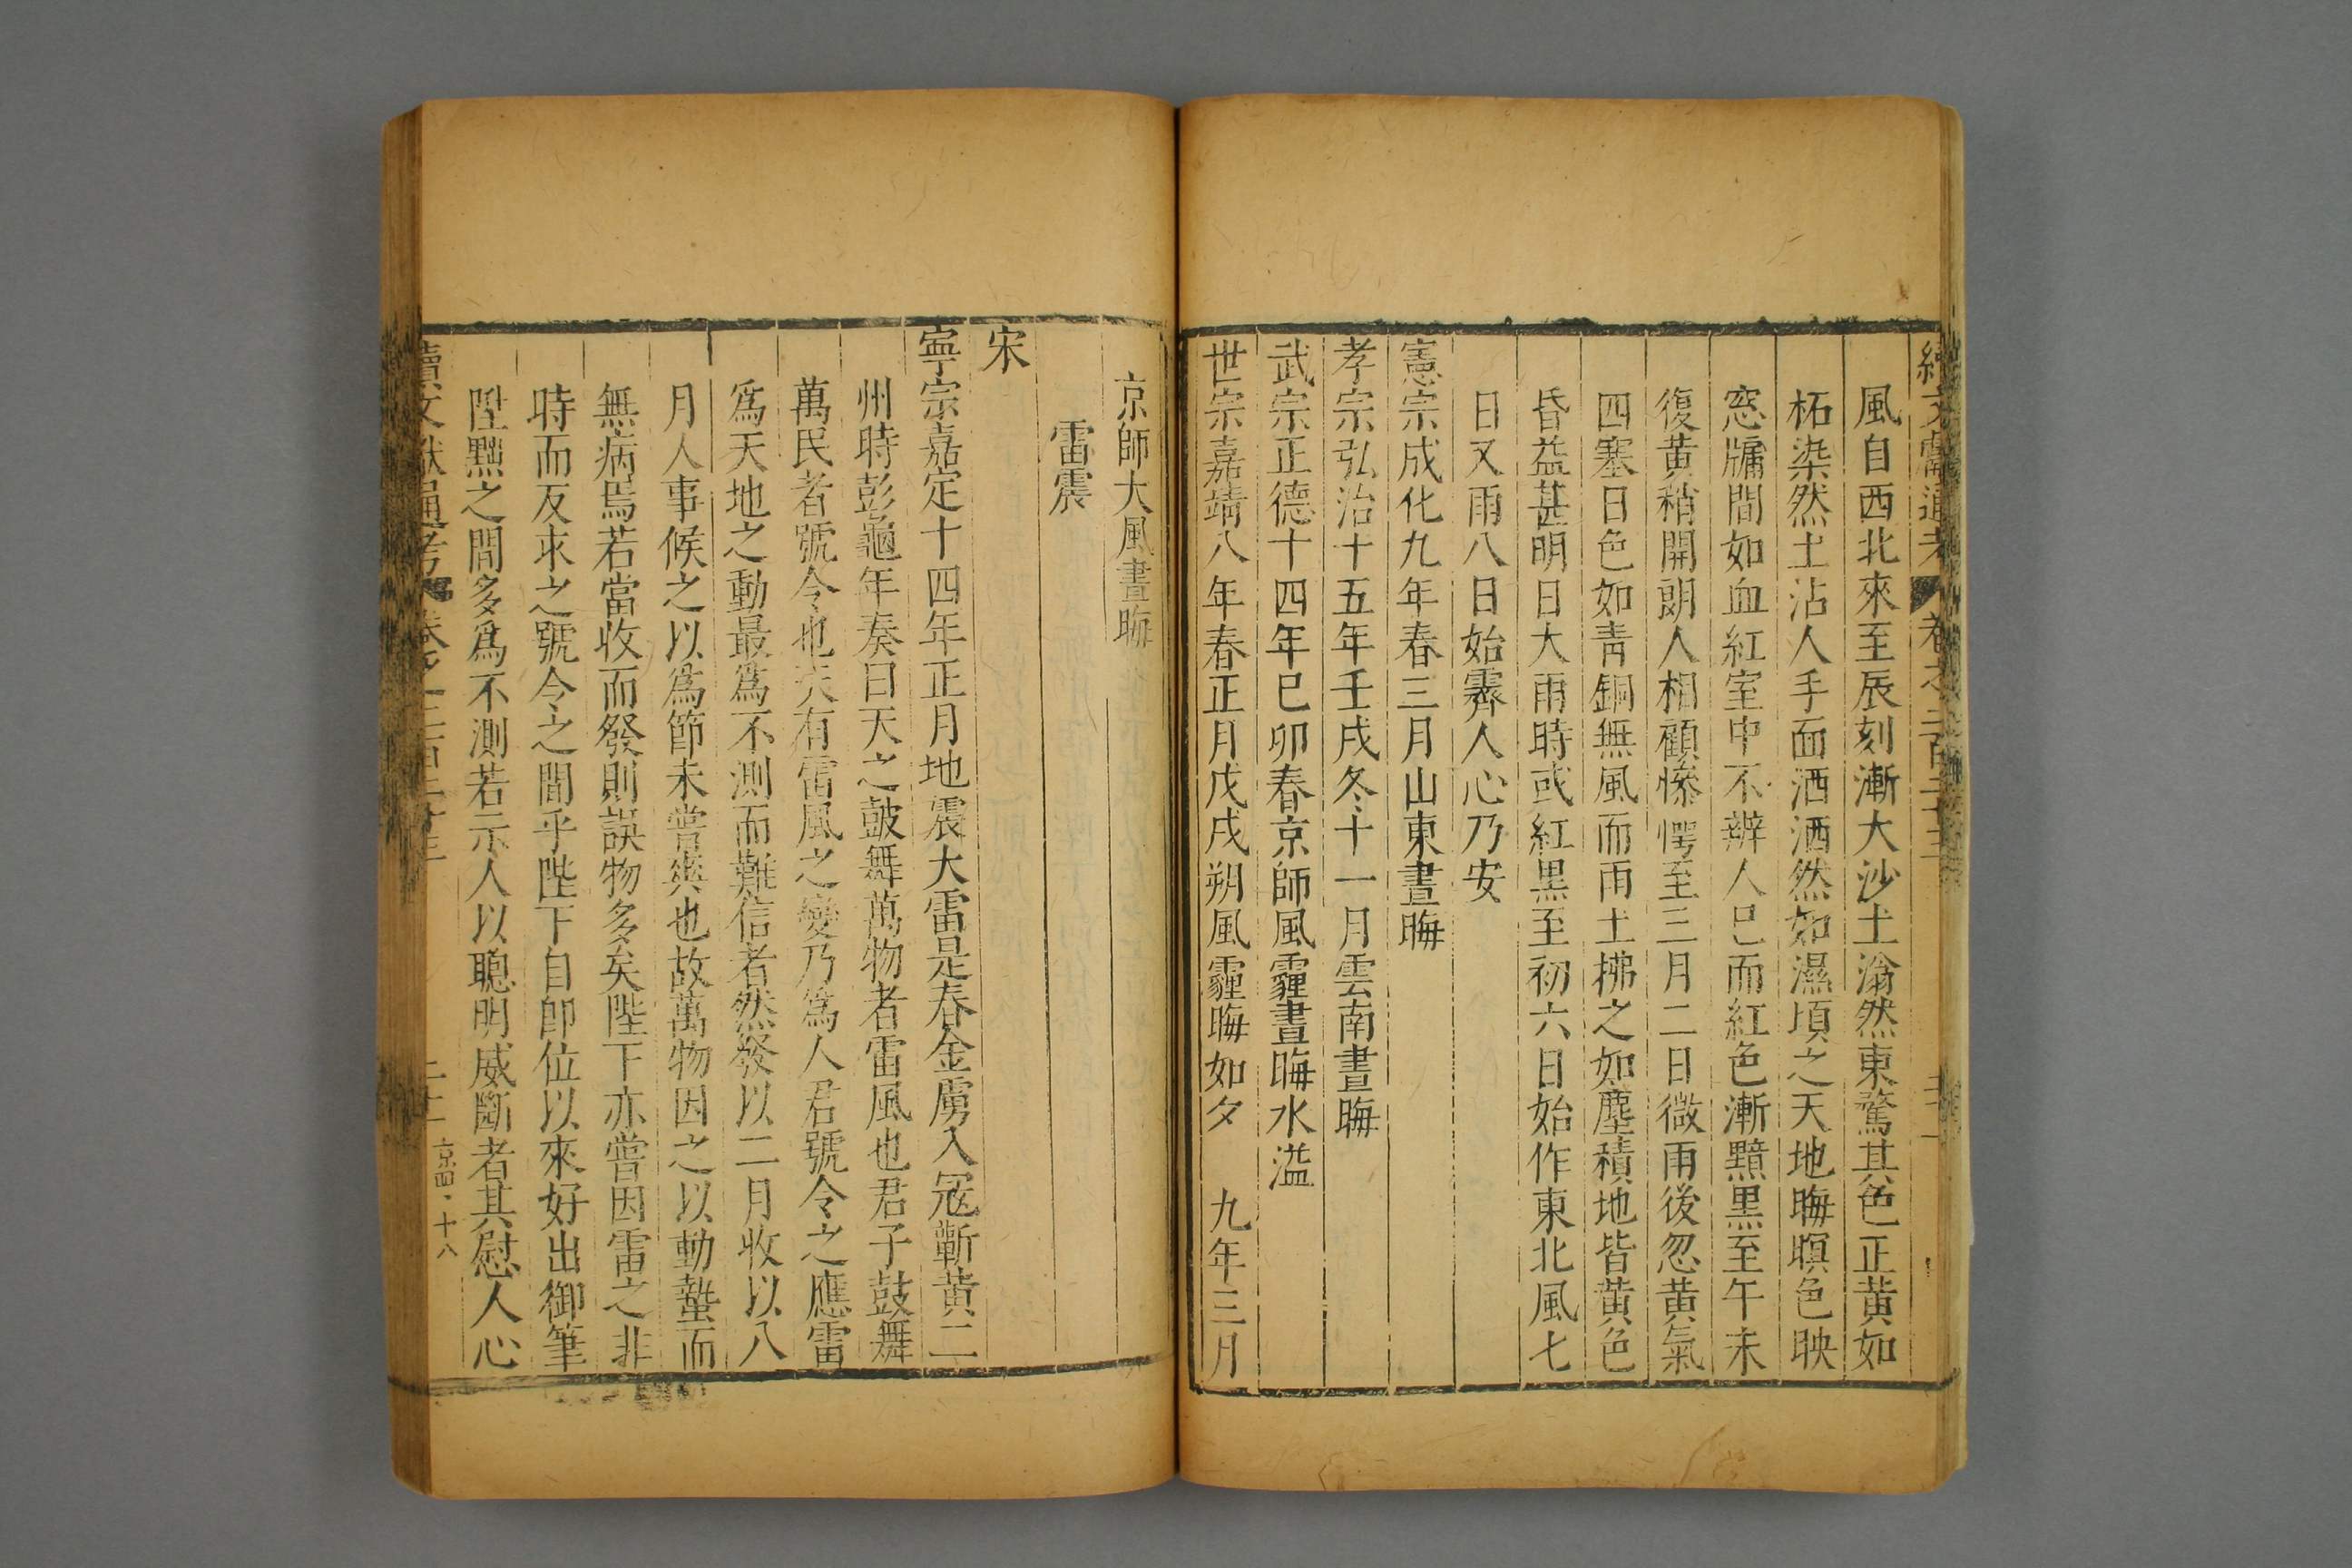 續文獻通考 卷之二百二十二
風自西北來至辰刻漸大沙土滃然東騖其色正黄如
柘染然土沾人手面洒洒然如濕頃之天地晦暝色映
窓牖間如血紅室中不辨人巳而紅色漸黯黒至午未
復黄稍開朗人相顧慘愕至三月二日微雨後忽黄氣
四塞日色如青銅無風而雨土拂之如塵積地皆黄色
昏益甚明日大雨時或紅黒至初六日始作東北風七
日又雨八日始霽人心乃安
憲宗成化九年春三月山東晝晦
孝宗弘治十五年壬戌冬十一月雲南晝晦
武宗正德十四年巳卯春京師風霾晝晦水溢
世宗嘉靖八年春正月戊戌朔風霾晦如夕 九年三月
京師大風晝晦
雷震
宋
寧宗嘉定十四年正月地震大雷是春金虜入冦蘄黄二
州時彭龜年奏曰天之皷舞萬物者雷風也君子鼓舞
萬民者號令也天有雷風之變乃爲人君號令之應雷
爲天地之動最爲不測而難信者然發以二月收以八
月人事候之以爲節未嘗爽也故萬物因之以動蟄而
無病焉若當收而發則誤物多矣陛下亦嘗因雷之非
時而反求之號令之間乎陛下自即位以來好出御筆
陞黜之間多爲不測若示人以聰明威斷者其慰人心
續文獻通考 二十二 京四·十八